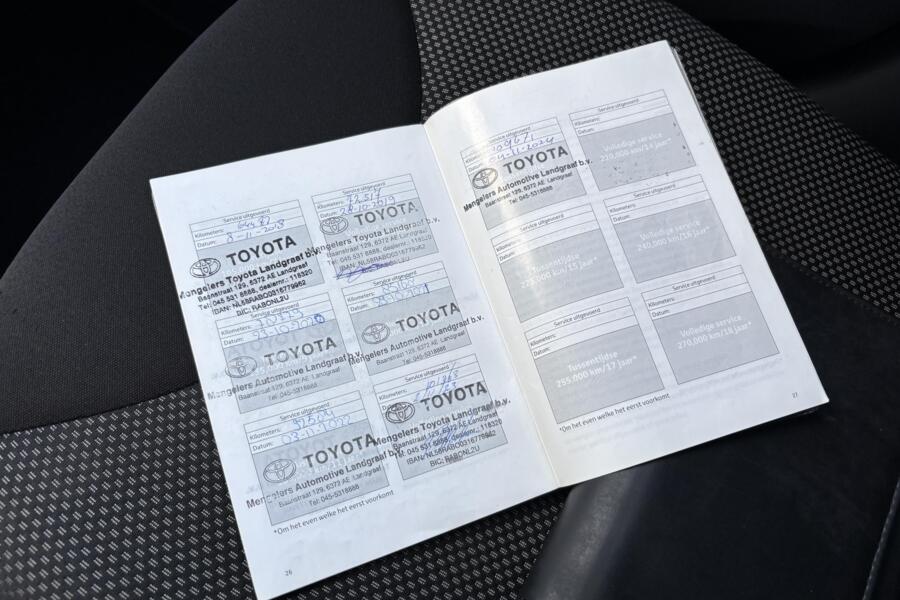 Service uitgevoerd
Kilometers:
Datum: 8-11-2018
TOYOTA
Mengelers Toyota Landgraaf b.v.
Baanstraat 129, 6372 AE Landgraaf
Tel: 045 531 8888, dealernr.: 118320
IBAN: NL58RABO0316779962
BIC: RABONL2U
Service uitgevoerd
Kilometers:
Datum:
TOYOTA
Mengelers Toyota Landgraaf b.v.
Baanstraat 129, 6372 AE Landgraaf
Tel: 045 531 8888, dealernr.: 118320
IBAN: NL58RABO0316779962
Service uitgevoerd
Kilometers:
Datum:
TOYOTA
Mengelers Automotive Landgraaf b.v.
Baanstraat 129, 6372 AE Landgraaf
Tel: 045-5318888
Service uitgevoerd
Kilometers:
Datum:
TOYOTA
Mengelers Automotive Landgraaf b.v.
Baanstraat 129, 6372 AE Landgraaf
Tel: 045-5318888
Service uitgevoerd
Kilometers:
Datum:
TOYOTA
Mengelers Automotive Landgraaf b.v.
Baanstraat 129, 6372 AE Landgraaf
Tel: 045-5318888
Service uitgevoerd
Kilometers:
Datum:
TOYOTA
Mengelers Toyota Landgraaf b.v.
Baanstraat 129, 6372 AE Landgraaf
Tel: 045 531 8888, dealernr.: 118320
IBAN: NL58RABO0316779962
BIC: RABONL2U
*Om het even welke het eerst voorkomt
26
Service uitgevoerd
Kilometers: 109671
Datum: 04-11-2024
TOYOTA
Mengelers Automotive Landgraaf b.v.
Baanstraat 129, 6372 AE Landgraaf
Tel: 045-5318888
Service uitgevoerd
Kilometers:
Datum:
Volledige service
210.000 km/14 jaar*
Service uitgevoerd
Kilometers:
Datum:
Tussentijdse
225.000 km/15 jaar*
Service uitgevoerd
Kilometers:
Datum:
Volledige service
240.000 km/16 jaar*
Service uitgevoerd
Kilometers:
Datum:
Tussentijdse
255.000 km/17 jaar*
Service uitgevoerd
Kilometers:
Datum:
Volledige service
270.000 km/18 jaar*
*Om het even welke het eerst voorkomt
27